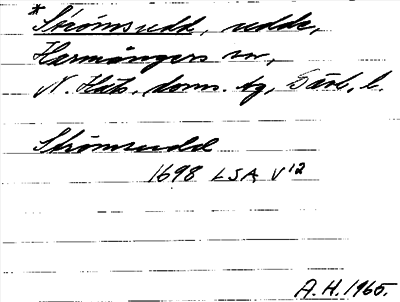 * Strömsudd, udde,
Harmångers sn,
N. Häls. doms. tg, Gävl. l.
Strömsudd
1698 LSA V12
A.H. 1965.